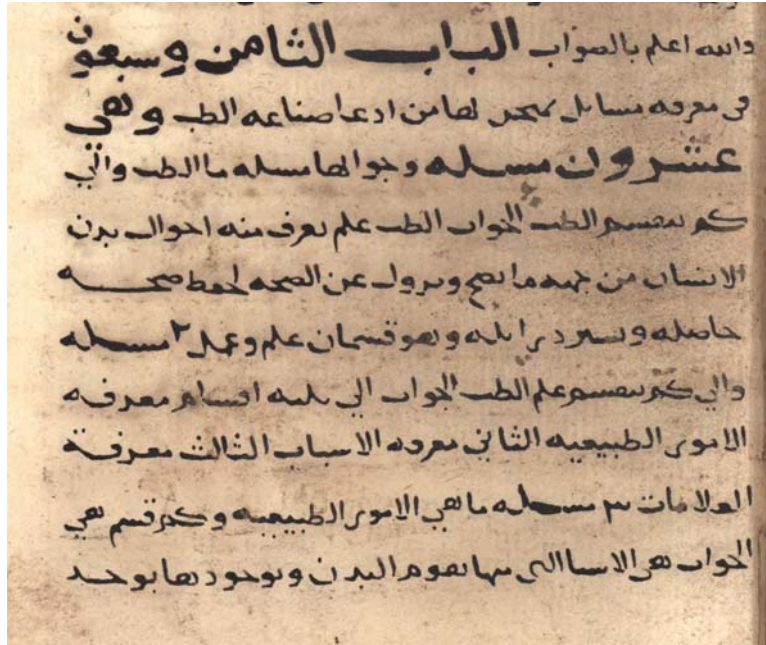 والله اعلم بالصواب الباب الثامن وسبعون
فى معرفه مسايل يمتحن لها من ادعا صناعه الطب وهي
عشرون مسله وجوابها مسله ما الطب والي
كم ينقسم الطب الجواب الطب علم يعرف منه احوال بدن
الانسان من جهه ما يصح ويزول عن الصحه لحفظ صحه
حاصله وتسترد زايله وهو قسمان علم وعمل ٢ مسله
والي كم ينقسم علم الطب الجواب الي ثلثه اقسام معرفه
الامور الطبيعيه الثاني معرفه الاسباب الثالث معرفة
العلامات ٣ مسله ما هي الامور الطبيعيه وكم قسم هي
الجواب هى الاسيا التى بها يقوم البدن وبوجودها يوجد